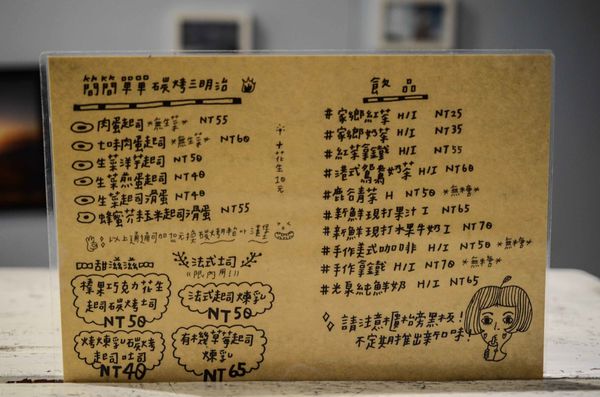 簡簡單單碳烤三明治
肉蛋起司 *無生菜* NT55
七味肉蛋起司 *無生菜* NT60
生菜洋芋起司 NT50
生菜煎蛋起司 NT40
生菜起司滑蛋 NT40
蜂蜜芥末玉米起司滑蛋 NT55
※+花生10元
以上通通可加10元換碳烤
甜滋滋
榛果巧克力花生
起司碳烤吐司
NT50
烤煉乳碳烤
起司吐司
NT40
法式土司
(限內用!!)
法式起司煉乳
NT50
有機草莓起司
煉乳
NT65
飲品
#家鄉紅茶 H/I NT25
#家鄉奶茶 H/I NT35
#紅茶拿鐵 H/I NT55
#港式鴛鴦奶茶 H/I NT60
#鹿谷青茶 H NT50 *無糖*
#新鮮現打果汁 I NT65
#新鮮現打水果牛奶 I NT70
#手作美式咖啡 H/I NT50 *無糖*
#手作拿鐵 H/I NT70 *無糖*
#光泉純鮮奶 H/I NT65
請注意櫃枱旁黑板!
不定期推出新口味!